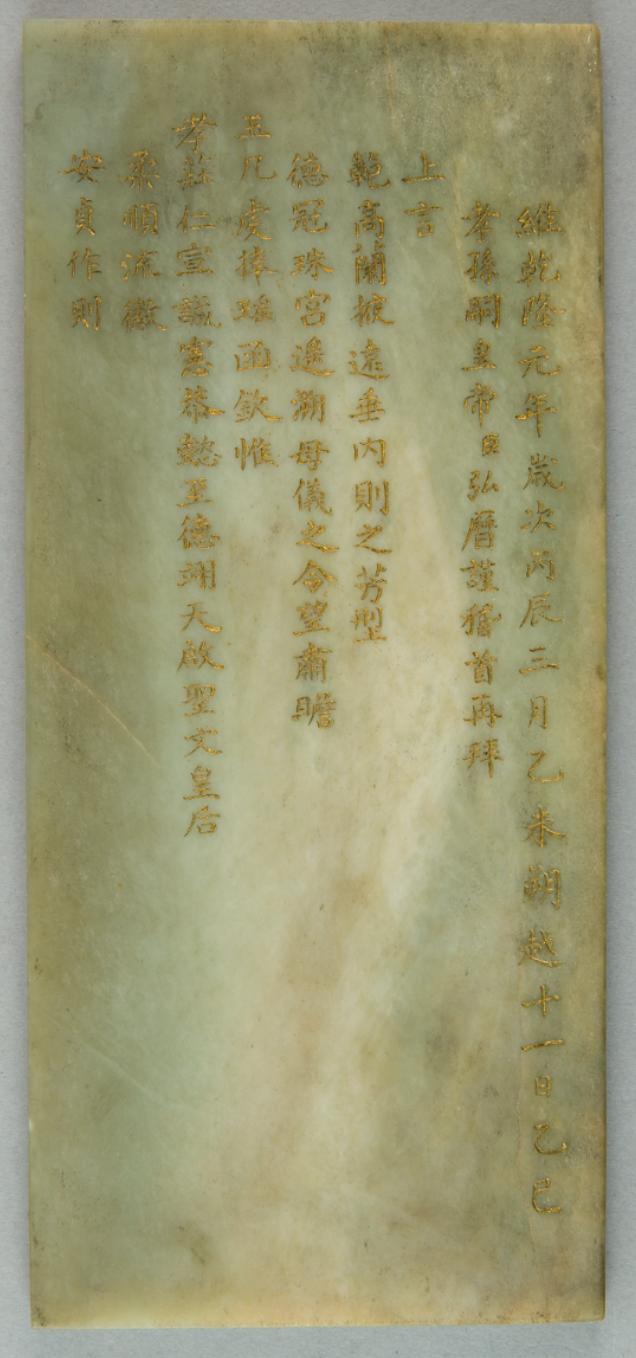 維乾隆元年歲次丙辰三月乙未朔越十一日乙巳
孝孫嗣皇帝臣弘曆謹稽首再拜
上言
範髙蘭掖遠垂內則之芳型
德冠珠宮遙溯母儀之令望肅瞻
玉几虔捧瑤函欽惟
孝莊仁宣誠憲恭懿至德翊天啟聖文皇后
柔順流徽
安貞作則